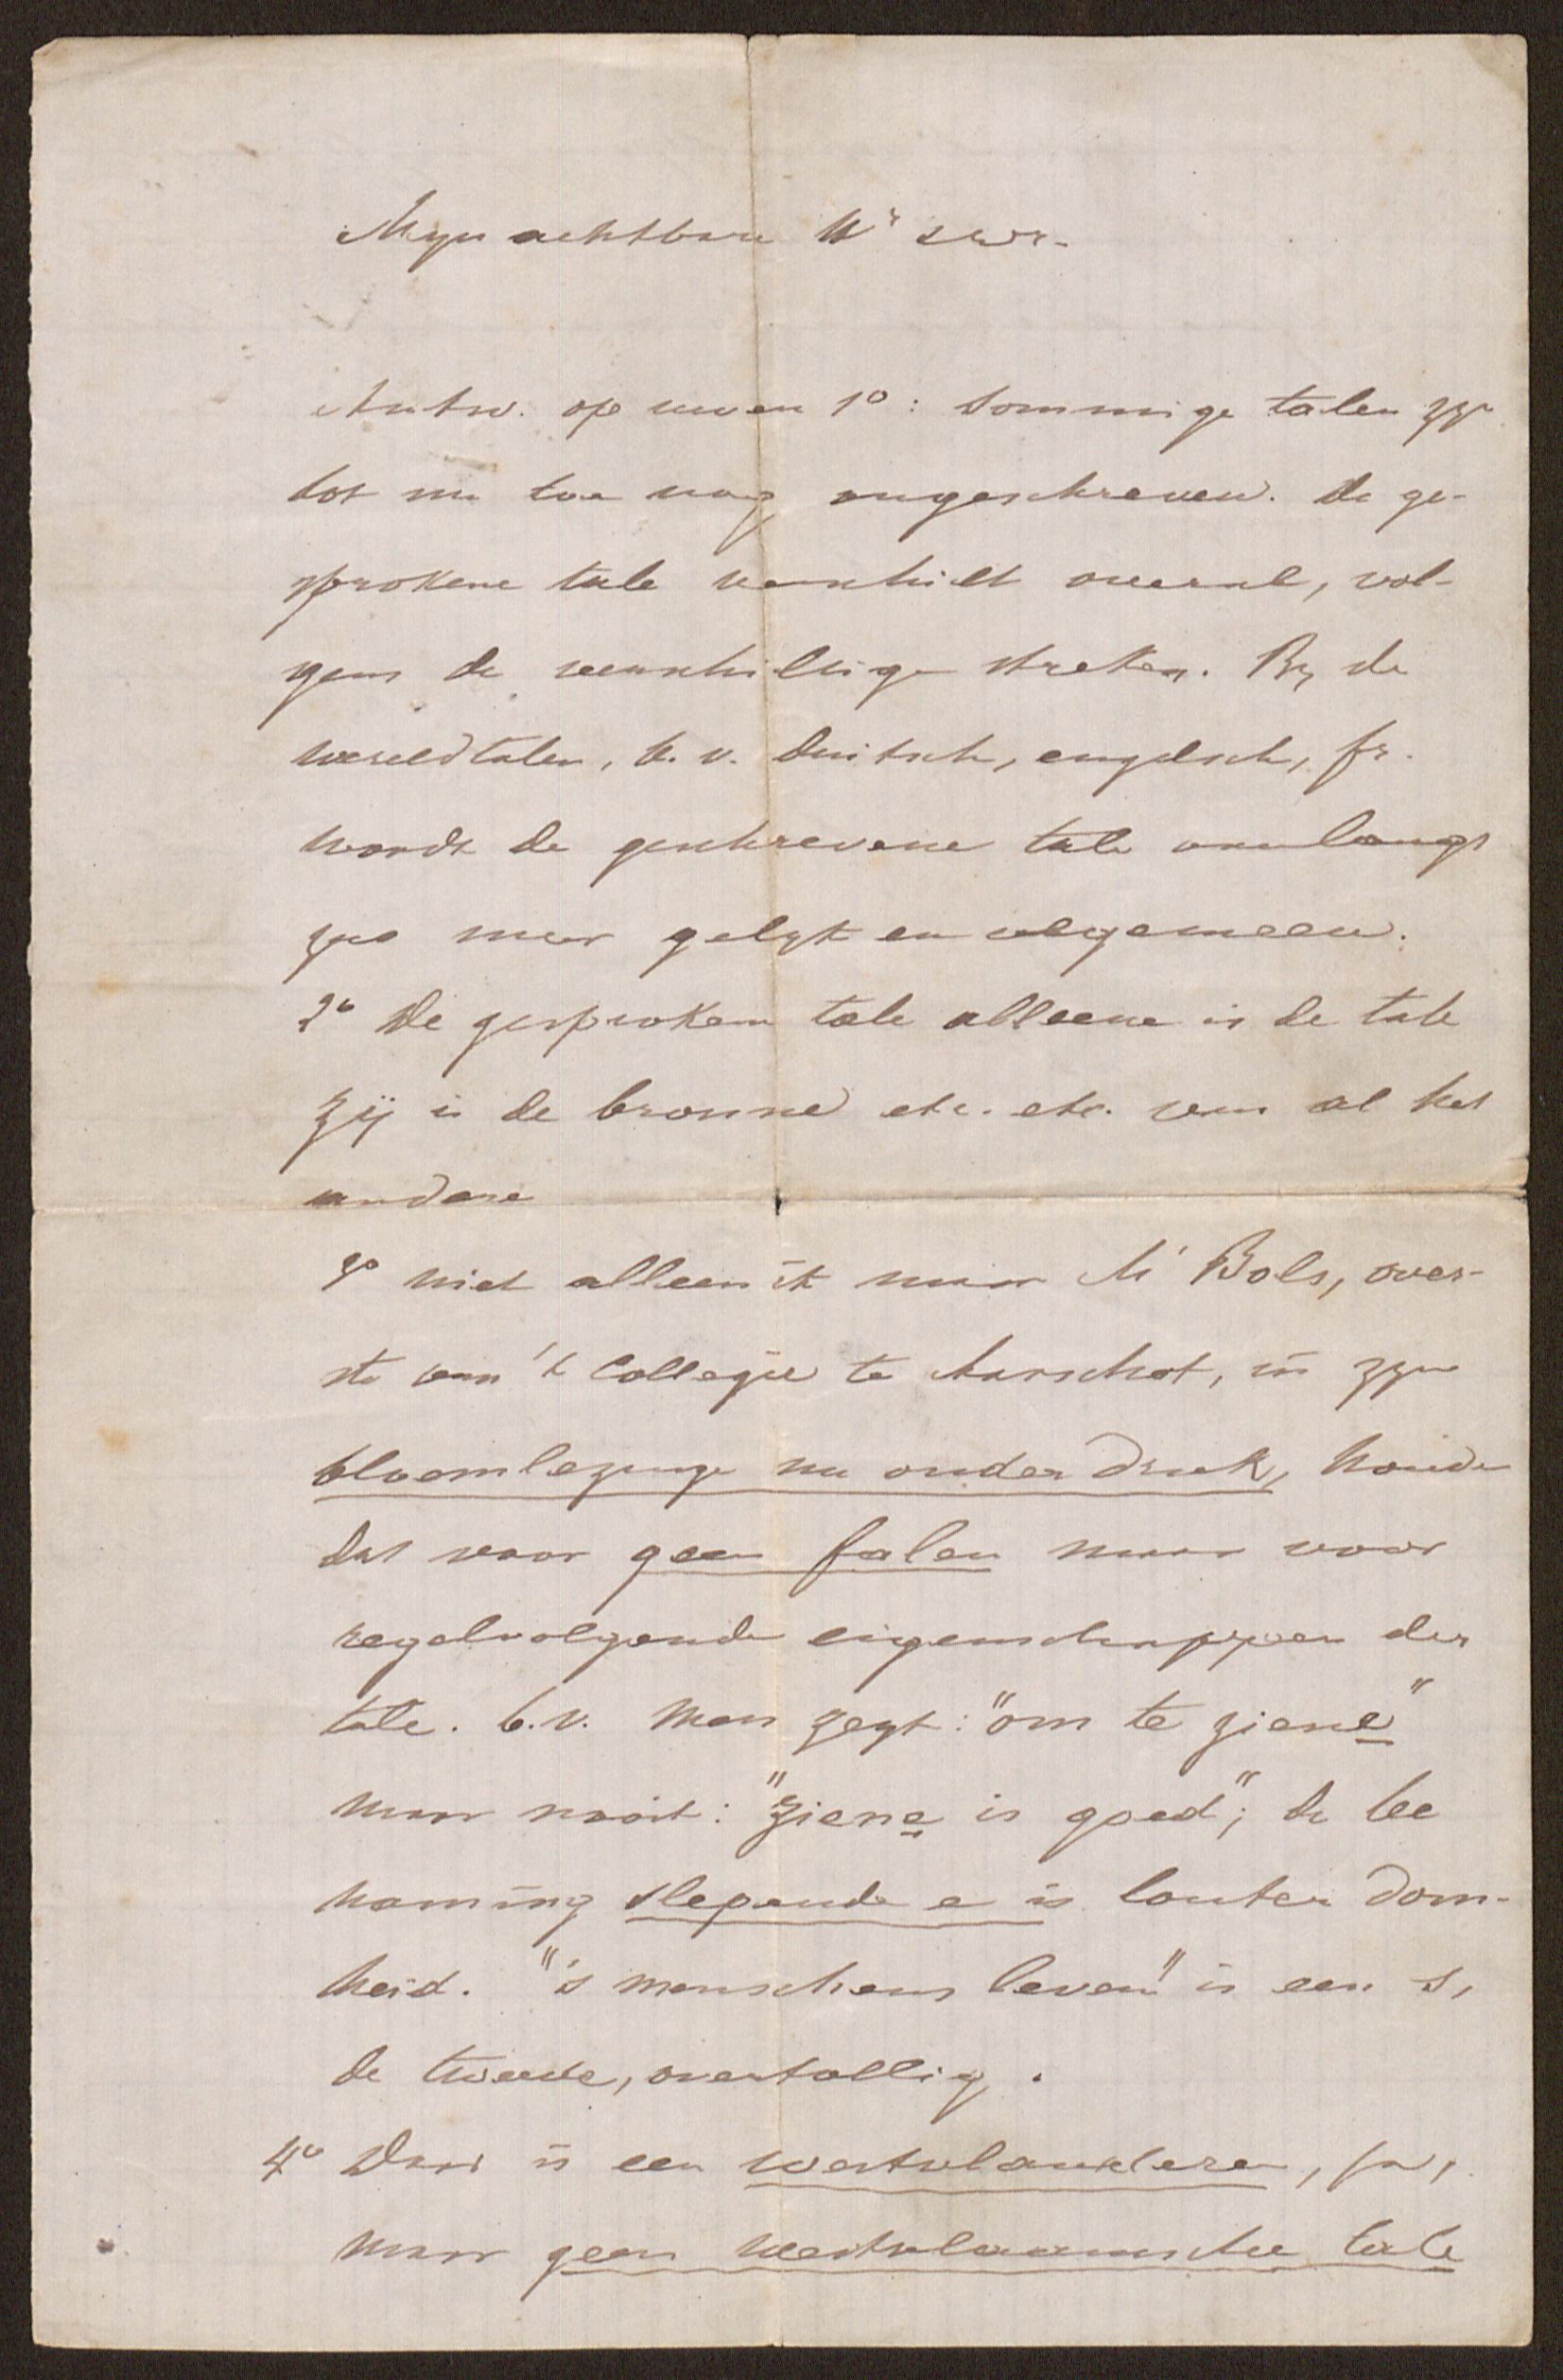 Myn achtbare Hr
Antw. op uwen 1º: Sommige talen zyn
tot nu toe nog ongeschreven. De ge-
sprokene tale verschilt overal, vol-
gens de verschillige streken. By de
wereldtalen, b. v. duitsch, engelsch, fr.
wordt de geschrevene tale onlangs
zoo meer gelyk en algemeen.
2º De gesproken tale alleene is de tale
zij is de bronne etc. etc. van al het
andere
3º niet alleen ik maar Mr Bols, over-
ste van 't Collegie te Aarschot, in zyn
bloemlezinge nu onder druk, houdt
dat voor geen falen maar voor
regelvolgende eigenschappen der
tale. b.v. Men zegt: "om te ziene"
maar nooit: "ziene is goed"; de be
naming slepende e is louter dom-
heid. "'s menschens leven" is een s,
de tweede, overtollig.
4º Daar is een westvlanderen, ja,
maar geen westvlaamsche tale